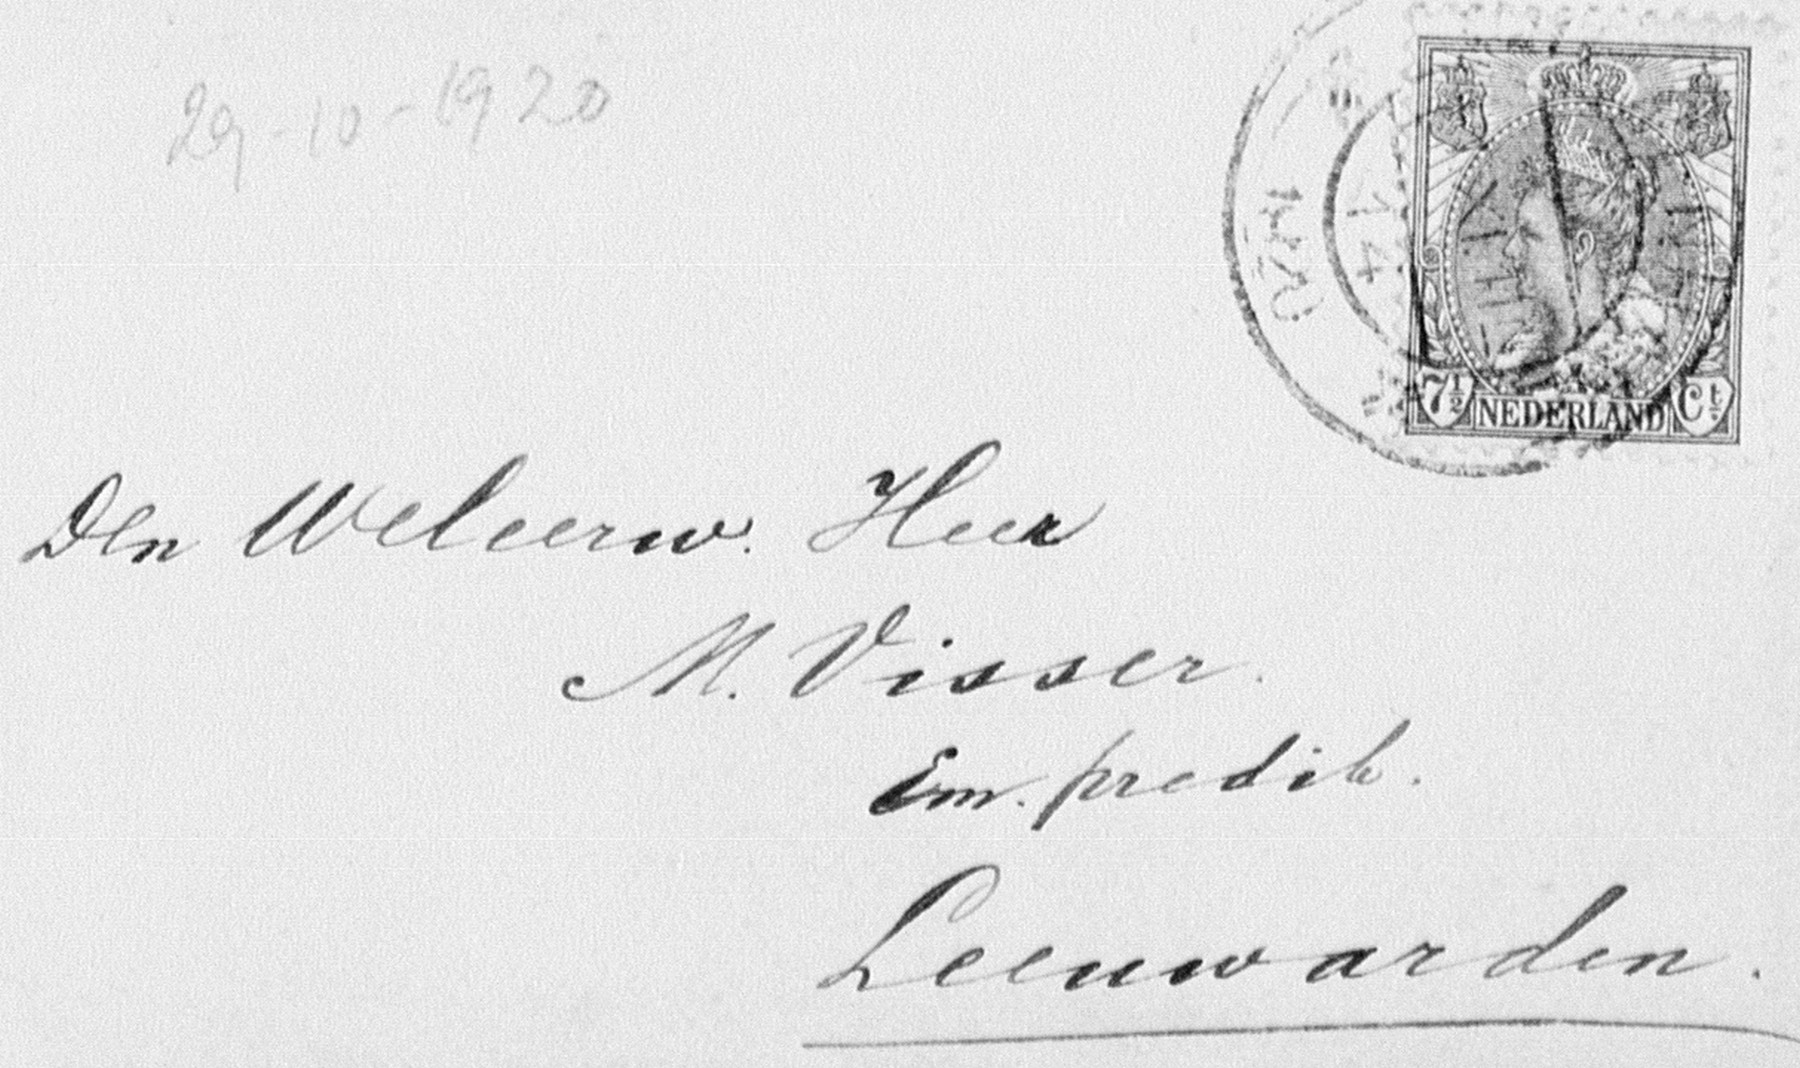 29-10-1920
7½ NEDERLAND Ct.
Den Weleerw. Heer
M. Visser.
Em. predik.
Leeuwarden.